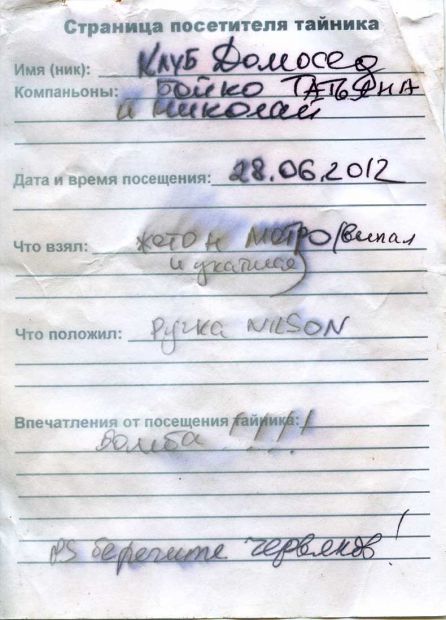 Страница посетителя тайника
Имя (ник): Клуб Домосед
Компаньоны: Бойко Татьяна
и Николай
Дата и время посещения: 28.06.2012
Что взял: жетон метро/выпал
и укатился)
Что положил: Ручка NILSON
Впечатления от посещения тайника:
Бомба!!!!
PS берегите червяков!